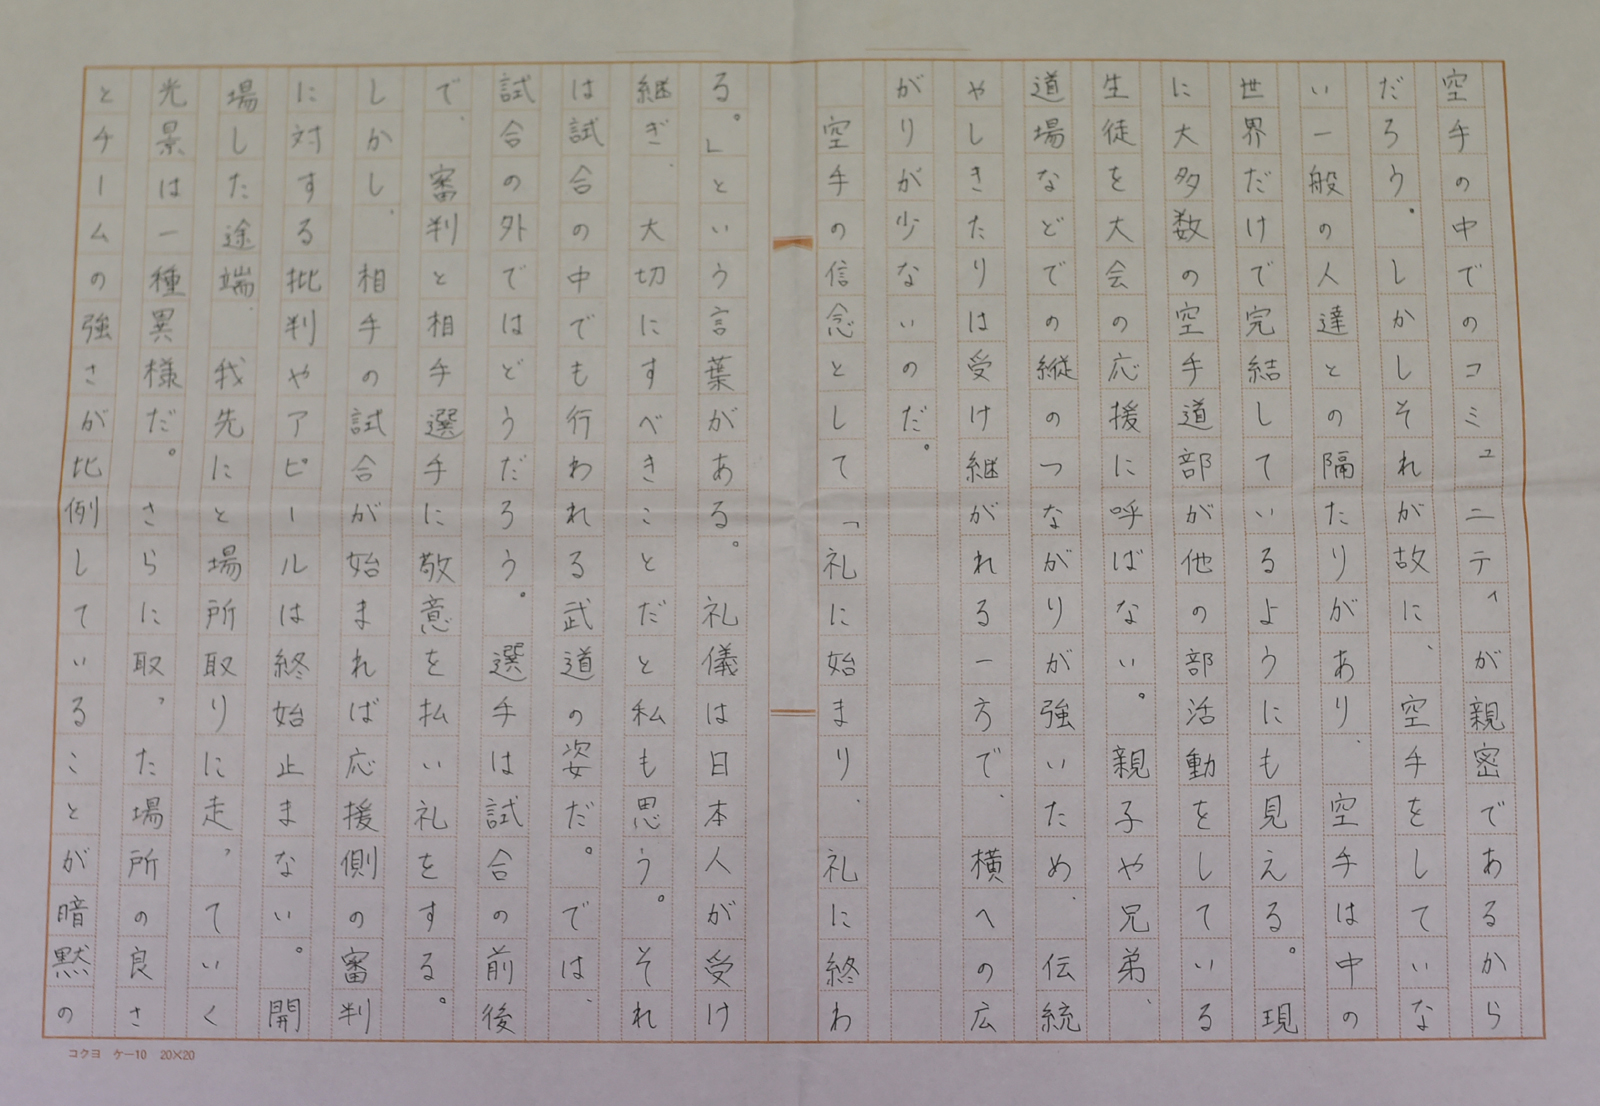 空手の中でのコミュニティが親密であるから
だろう。しかしそれが故に、空手をしていな
い一般の人達との隔たりがあり、空手は中の
世界だけで完結しているようにも見える。現
に大多数の空手道部が他の部活動をしている
生徒を大会の応援に呼ばない。親子や兄弟、
道場などでの縦のつながりが強いため、伝統
やしきたりは受け継がれる一方で、横への広
がりが少ないのだ。
空手の信念として「礼に始まり、礼に終わ
る。」という言葉がある。礼儀は日本人が受け
継ぎ、大切にすべきことだと私も思う。それ
は試合の中でも行われる武道の姿だ。では、
試合の外ではどうだろう。選手は試合の前後
で、審判と相手選手に敬意を払い礼をする。
しかし、相手の試合が始まれば応援側の審判
に対する批判やアピールは終始止まない。開
場した途端、我先にと場所取りに走っていく
光景は一種異様だ。さらに取った場所の良さ
とチームの強さが比例していることが暗黙の
コクヨ ケー10 20×20